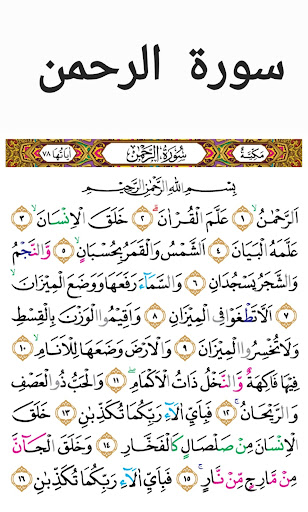 سورة الرحمن
مَكِّيَّةٌ سُورَةُ الرَّحْمٰنِ آيَاتُهَا ٧٨
بِسْمِ اللهِ الرَّحْمٰنِ الرَّحِيْمِ
اَلرَّحْمٰنُۙ ١ عَلَّمَ الْقُرْاٰنَۗ ٢ خَلَقَ الْاِنْسَانَۙ ٣
عَلَّمَهُ الْبَيَانَ ٤ اَلشَّمْسُ وَالْقَمَرُ بِحُسْبَانٍۙ ٥ وَّالنَّجْمُ
وَالشَّجَرُ يَسْجُدَانِ ٦ وَالسَّمَاۤءَ رَفَعَهَا وَوَضَعَ الْمِيْزَانَۙ
٧ اَلَّا تَطْغَوْا فِى الْمِيْزَانِ ٨ وَاَقِيْمُوا الْوَزْنَ بِالْقِسْطِ
وَلَا تُخْسِرُوا الْمِيْزَانَ ٩ وَالْاَرْضَ وَضَعَهَا لِلْاَنَامِۙ ١٠
فِيْهَا فَاكِهَةٌ وَّالنَّخْلُ ذَاتُ الْاَكْمَامِۖ ١١ وَالْحَبُّ ذُو الْعَصْفِ
وَالرَّيْحَانُۚ ١٢ فَبِاَيِّ اٰلَاۤءِ رَبِّكُمَا تُكَذِّبٰنِ ١٣ خَلَقَ
الْاِنْسَانَ مِنْ صَلْصَالٍ كَالْفَخَّارِ ١٤ وَخَلَقَ الْجَاۤنَّ
مِنْ مَّارِجٍ مِّنْ نَّارٍۚ ١٥ فَبِاَيِّ اٰلَاۤءِ رَبِّكُمَا تُكَذِّبٰنِ
١٦